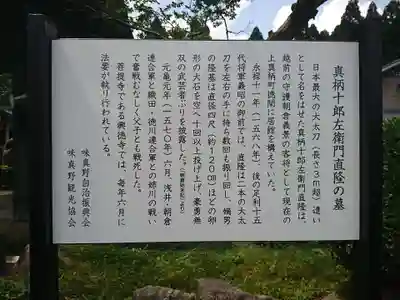 真柄十郎左衛門直隆の墓
日本最大の大太刀（長さ３ｍ超）遣い
として名をはせた真柄十郎左衛門直隆は、
越前の守護朝倉義景の客将として現在の
上真柄町機関に居館を構えていた。
永禄十一年（一五六八年）後の足利十五
代将軍義昭の御前では、直隆は二本の大太
刀を左右の手に持ち数回も振り回し、嫡男
の隆基は直径四尺（約１２０㎝）ほどの卵
形の大石を空へ十回以上投げ上げ、豪勇無
双の武芸者ぶりを披露した。
元亀元年（一五七〇年）六月、浅井・朝倉
連合軍と織田・徳川連合軍との姉川の戦い
で奮戦むなしく父子とも戦死した。
菩提寺である興徳寺では、毎年六月に
法要が執り行われている。
味真野自治振興会
味真野観光協会